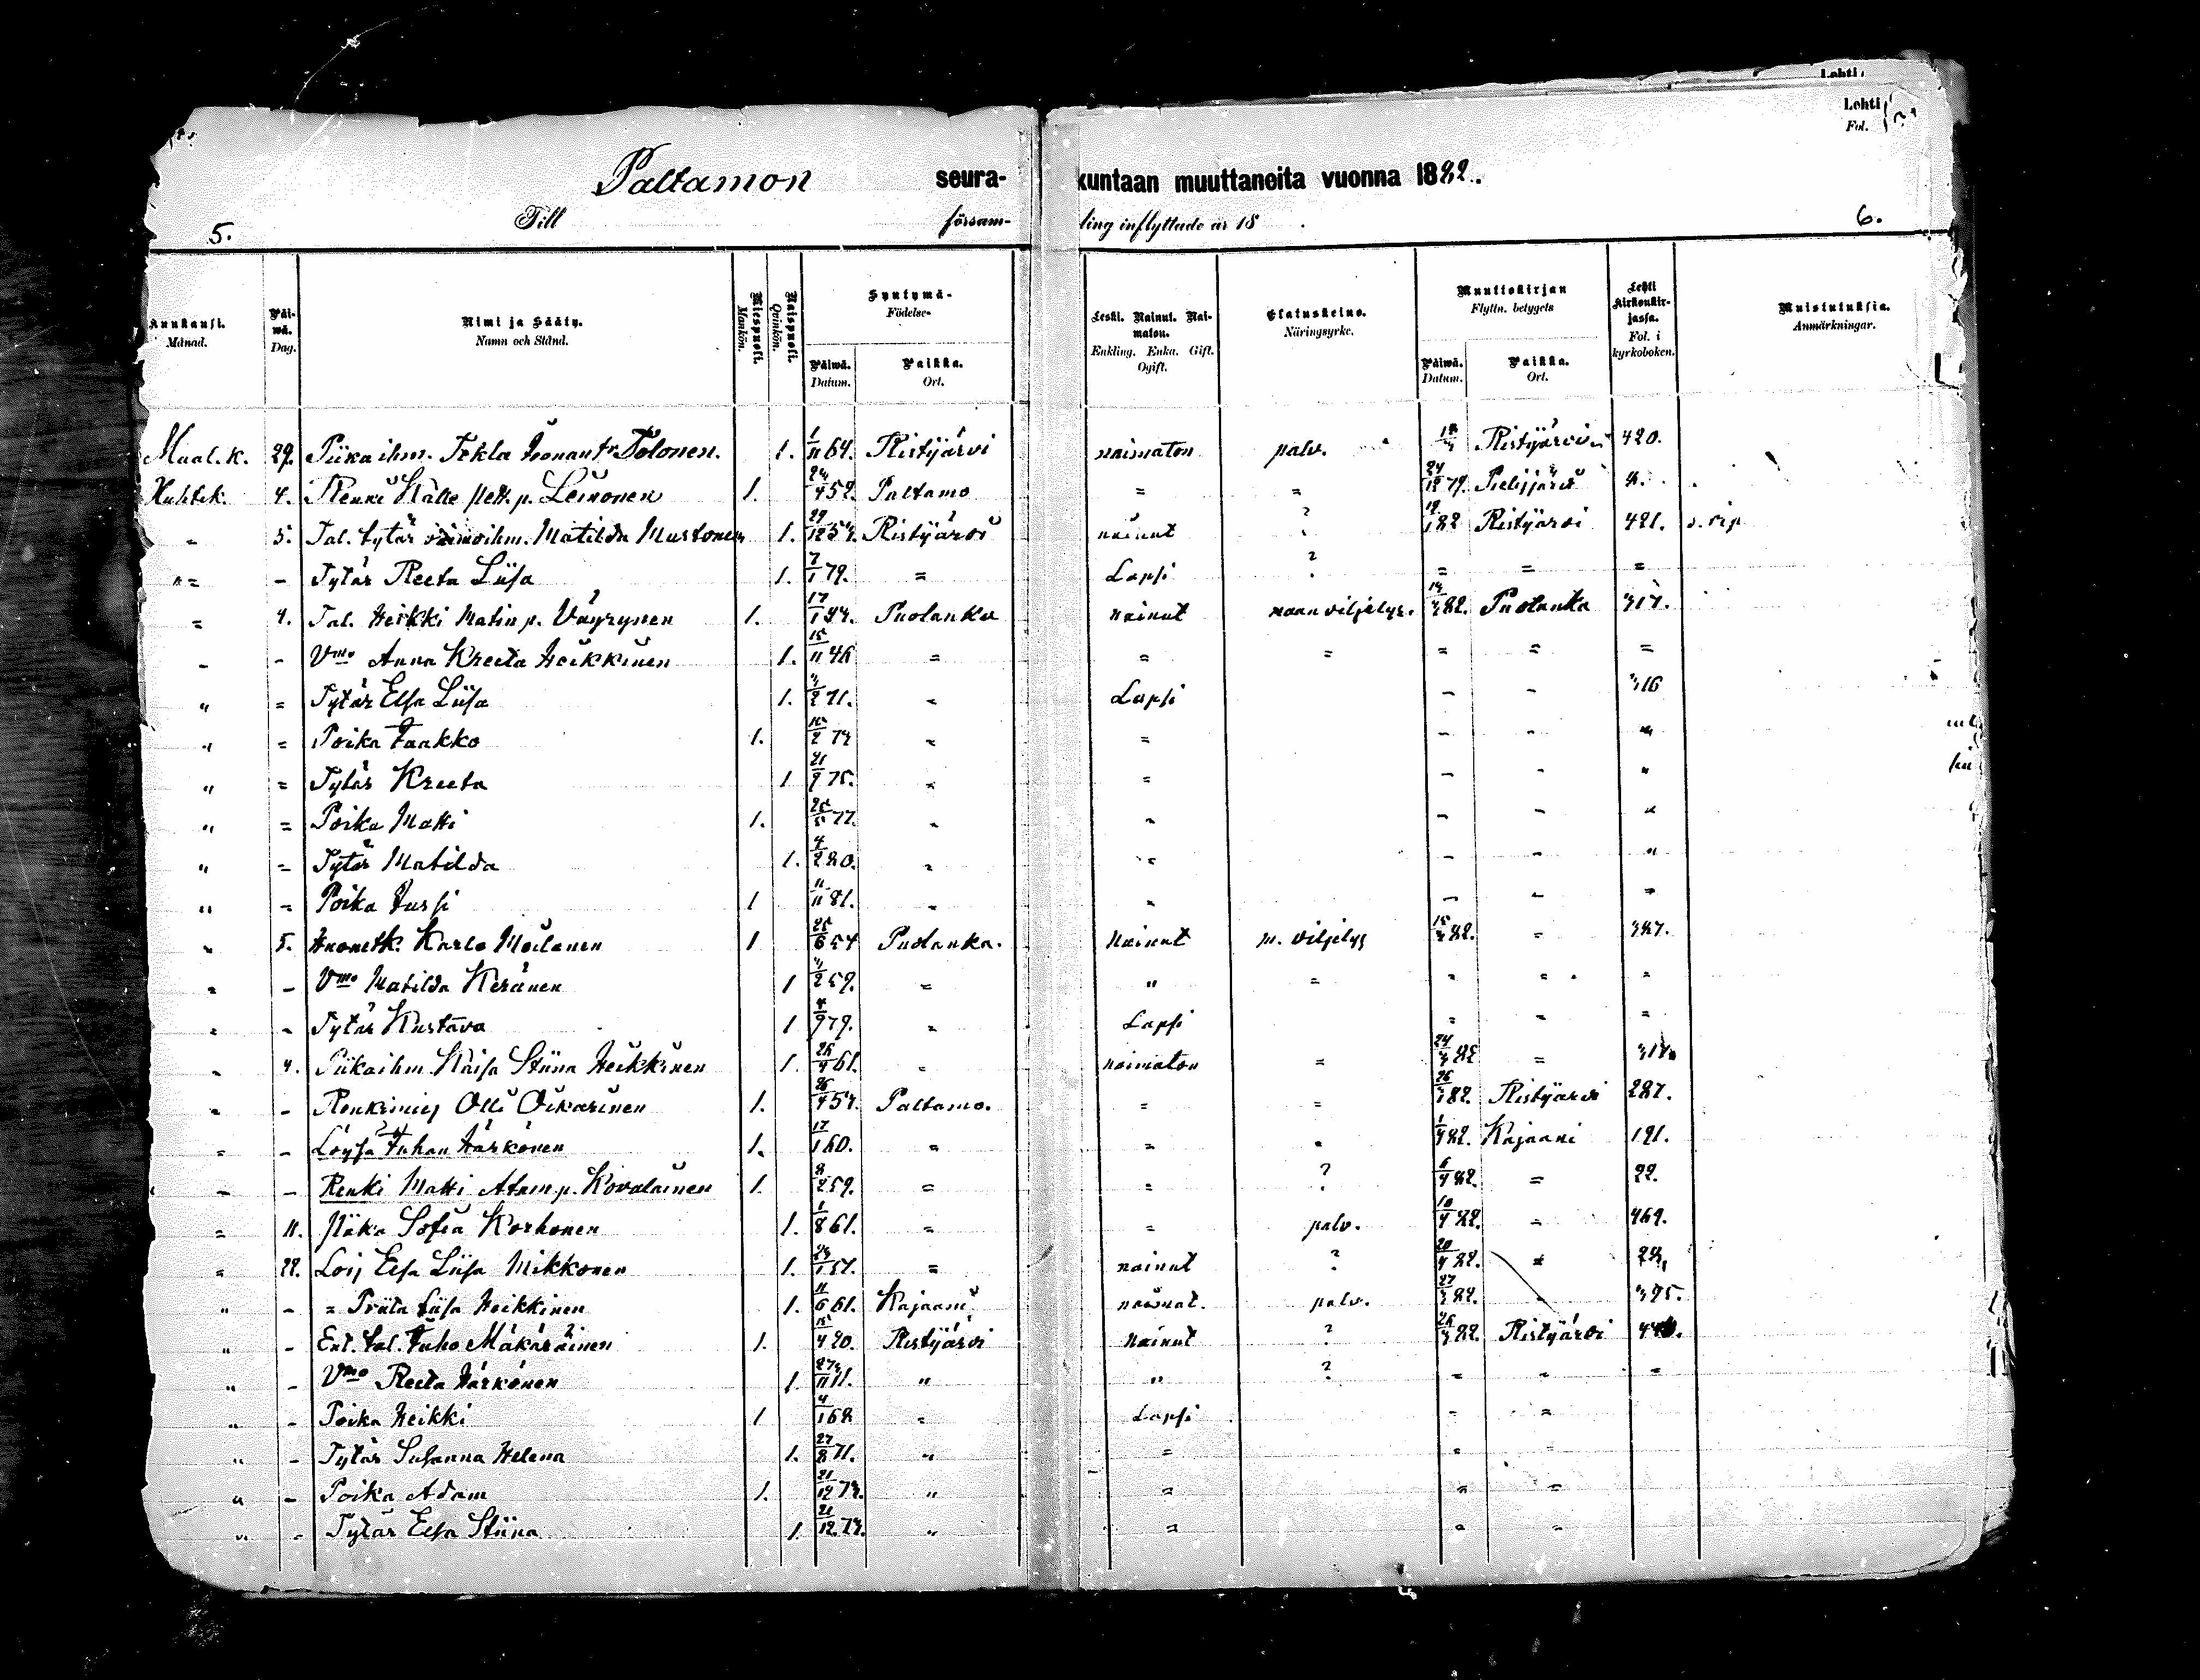 Lehti
Lehti
Fol.
Paltamon seura- kuntaan muuttaneita vuonna 1882.
5. Till försam- ling inflyttade år 18 . 6.
Kuukausi. Månad. Päi-wä. Dag. Nimi ja Sääty. Namn och Stånd. Miespuoli. Mankön. Naispuoli. Qvinkön. Syntymä- Födelse- Päiwä. Datum. Paikka. Ort. Leski. Nainut. Nai-maton. Enkling. Enka. Gift. Ogift. Elatuskeino. Näringsyrke. Muuttokirjan Flyttn. betygets Päiwä. Datum. Paikka. Ort. Lehti kirkonkir-jassa. Fol. i kyrkoboken. Muistutuksia. Anmärkningar.
Maal.k. 29. Piikaihm. Tekla Tolonen. 1. 1/11 64. Ristijärvi naimaton palv. Ristijärvi 420.
Huhtik. 4. Renki Kalle Pett.p. Leinonen 1. 52. Paltamo = = 24/12 79. Pielisjärvi
= 5. Tal. tytär vaimoihm. Matilda Mustonen 1. 29/12 54. Ristijärvi nainut ? 82 Ristijärvi 421. s. rip
= – Tytär Reeta Liisa 1. 7/1 79. = Lapsi ? = = =
= 4. Tal. Heikki Matin p. Väyrynen 1. 17/1 44. Puolanka nainut maanviljelys. 14/3 82. Puolanka 317.
– – Vmo Anna Kreeta Heikkinen 1. 15/11 46 = = = = = =
" = Tytär Elsa Liisa 1. 3/2 71. – Lapsi – – 316
" = Poika Jaakko 1. 2 73 = = – – "
" = Tytär Kreeta 1 21/9 75. = = – – "
" = Poika Matti 1. 25/5 77. " " – – "
" = Tytär Matilda 1. 4/2 80. " " – – "
" = Poika Jussi 1 11/11 81. " " – – "
" 5. Huonetk. Karlo Moilanen 1 25/6 54 Puolanka. Nainut m. viljelys 15/3 82. = 327.
= – Vmo Matilda Keränen 1 3/2 59. = " = = = =
= – Tytär Kustava 1 9 79. = Lapsi = = =
= 4. Piikaihm. Kaisa Stiina Heikkinen 1. 26/4 61. = naimaton = 24/3 82 = 317.
= – Renkimies Olli Oikarinen 1. 54. Paltamo. = = 26/3 82. Ristijärvi 287.
= – Löysä Juhan Härkönen 1. 17/1 60. = = " 82. Kajaani 121.
– – Renki Matti Atam p. Kovalainen 1. 8/2 59. = = ? 6/4 82. = 22.
= 11. Piika Sofia Korhonen 1. 1/8 61. = = palv. 10/4 82. = 469.
= 22. Loij Elsa Liisa Mikkonen 1. 57. = nainut ? 20/4 82. =
" – = Priita Liisa Heikkinen 1. 11/6 61. Kajaani naimat. palv. 27/3 82. = 395.
" – Ent. tal. Juho Mäkäräinen 1. 15/4 20. Ristijärvi Nainut ? 26/3 82. Ristijärvi
" – Vmo Reeta Härkönen 1. " " ? = = =
" – Poika Heikki 1 4/1 68 = Lapsi = =
" – Tytär Susanna Helena 1. 27/8 71. " = = =
" – Poika Adam 1. 21/12 73. " = = =
" – Tytär Elsa Stiina 1. 21/12 73. " = = =